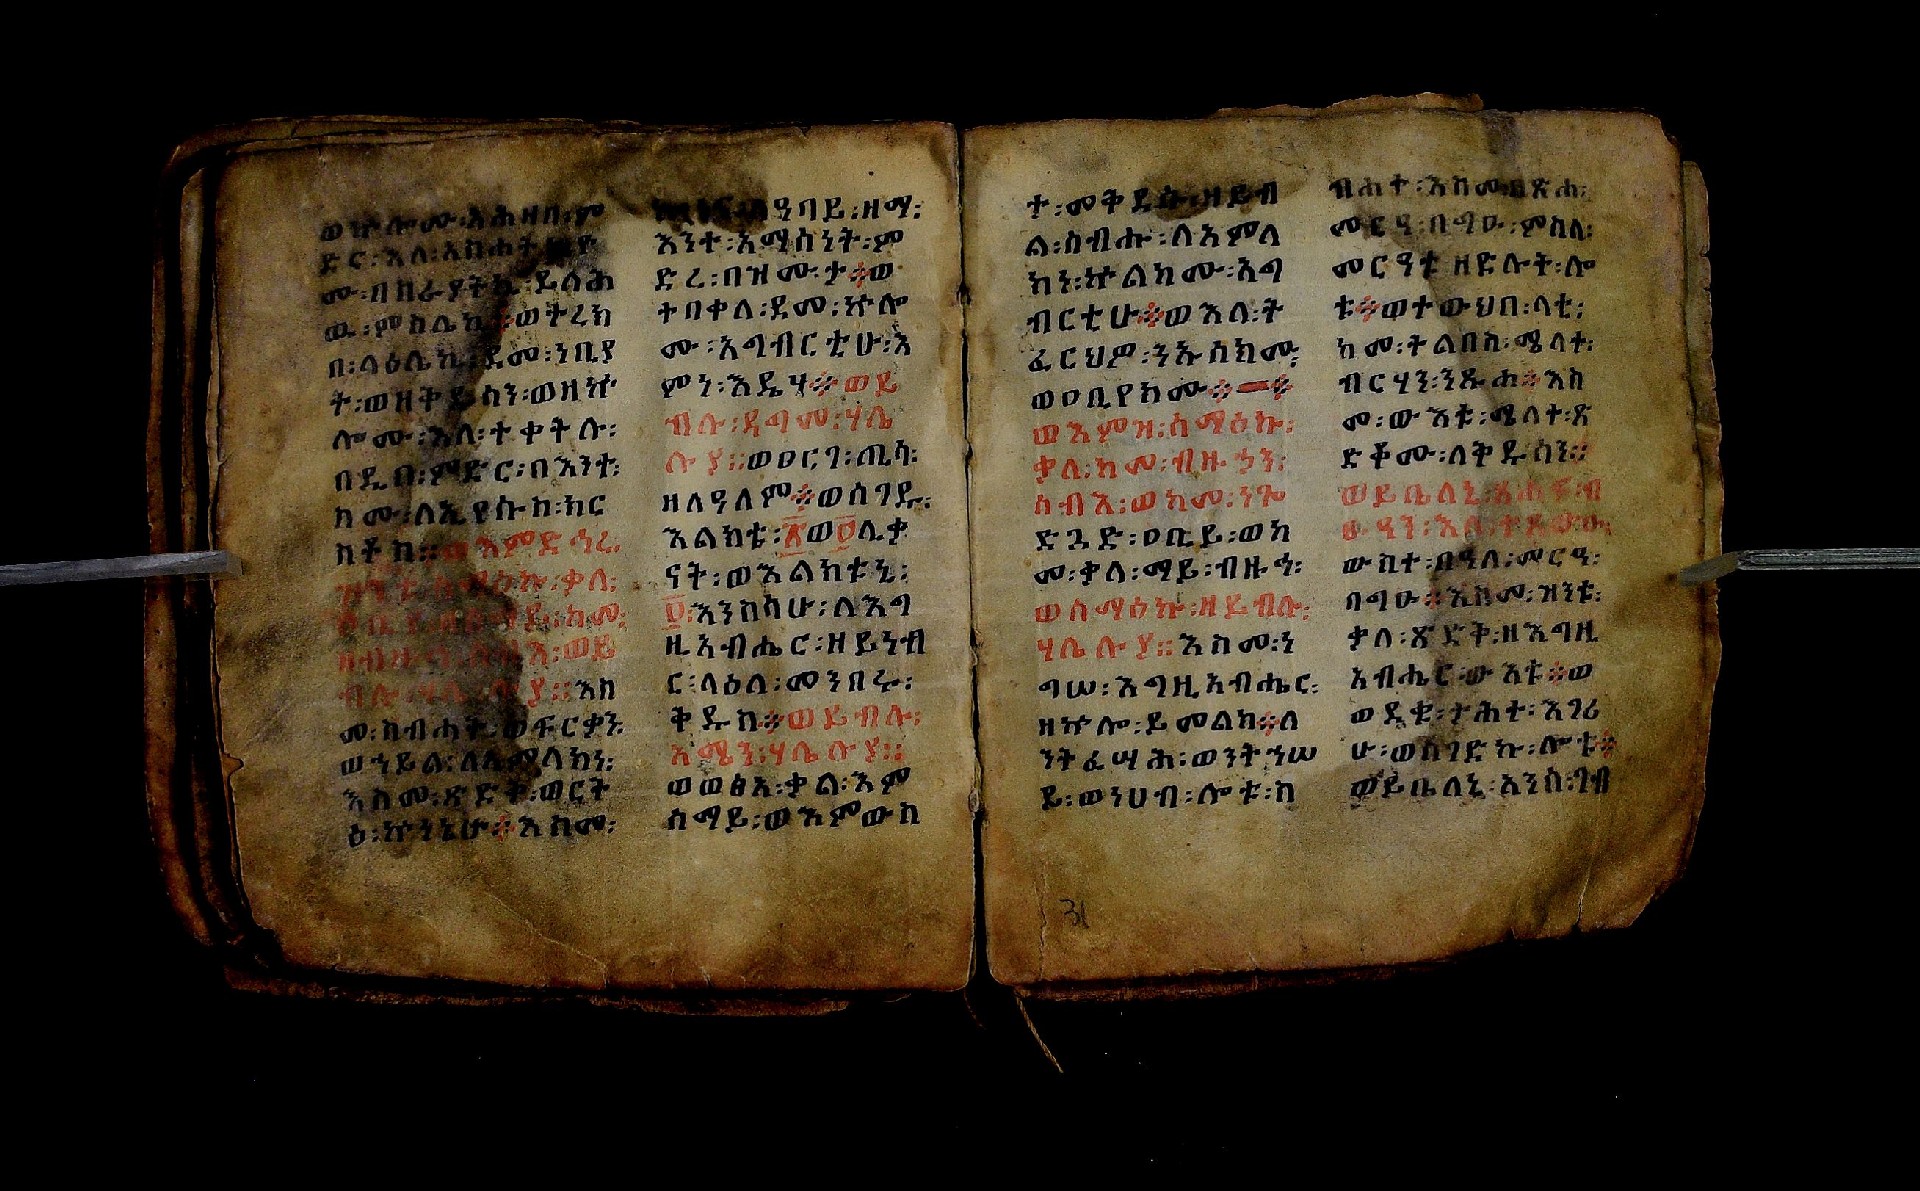 ወኵሎሙ፡አሕዛበ፡ም
ድር፡እለ፡አስሐት
ሙ፡በሥራያትኪ፡ይላሕ
ዉ፡ምስሌኪ፨ወትረክ
በ፡ላዕሌኪ፡ደመ፡ነቢያ
ት፡ወዘቅዱሳን፡ወዘኵ
ሎሙ፡እለ፡ተቀትሉ፡
በዲበ፡ምድር፡በእንተ፡
ስሙ፡ለኢየሱስ፡ክር
ስቶስ።ወእምድኅረ፡
ዝንቱ፡ሰማዕኩ፡ቃለ፡
ብሉ፡ሃሌ፡ሉያ።እስ
መ፡ስብሐት፡ወፍርቃን
ወኀይል፡ለአምላክነ፡
እስመ፡ጽድቅ፡ወርት
ዕ፡ኵነኔሁ፨እስመ፡
ዓባይ፡ዘማ፡
እንተ፡አማሰነት፡ም
ድረ፡በዝሙታ፨ወ
ተበቀለ፡ደመ፡ኵሎ
ሙ፡አግብርቲሁ፡እ
ምነ፡እዴሃ፨ወይ
ብሉ፡ዳግመ፡ሃሌ
ሉያ።ወዐርገ፡ጢሳ፡
ዘለዓለም፨ወሰገዱ፡
እልክቱ፡፳ወ፬ሊቃ
ናት፡ወእልክቱኒ፡
፬፡እንስሳሁ፡ለእግ
ዚአብሔር፡ዘይነብ
ር፡ላዕለ፡መንበሩ፡
ቅዱስ፨ወይብሉ፡
አሜን፡ሃሌሉያ።
ወወፅአ፡ቃል፡እም
ሰማይ፡ወእምውስ
ተ፡መቅደሱ፡ዘይብ
ል፡ሰብሑ፡ለአምላ
ክነ፡ኵልክሙ፡አግ
ብርቲሁ፨ወእለ፡ት
ፈርህዎ፡ንኡስክሙ
ወዐቢየክሙ፨—፨
ወእምዝ፡ሰማዕኩ፡
ቃለ፡ከመ፡ብዙኃን፡
ሰብእ፡ወከመ፡ነጐ
ድጓድ፡ዐቢይ፡ወከ
መ፡ቃለ፡ማይ፡ብዙኅ፡
ወሰማዕኩ፡ዘይብሉ፡
ሃሌሉያ።እስመ፡ነ
ግሠ፡እግዚአብሔር፡
ዘኵሎ፡ይመልክ፨ለ
ንትፈሣሕ፡ወንትኀሠ
ይ፡ወነሀብ፡ሎቱ፡ስ
ብሐተ፡እስመ፡በጽሐ፡
መርዓ፡በግዑ፡ምስለ፡
መርዓቱ፡ዘድሉት፡ሎ
ቱ፨ወተውህበ፡ላቲ፡
ከመ፡ትልበስ፡ሜላተ፡
ብርሃን፡ንጹሐ፨እስ
መ፡ውእቱ፡ሜላተ፡ጽ
ድቆሙ፡ለቅዱሳን፨
ወይቤለኒ፡አሐፍ፡ብ
ፁዓን፡እለ፡ተጸውዑ፡
ውስተ፡በዓለ፡መርዓ፡
በግዑ፨እስመ፡ዝንቱ፡
ቃለ፡ጽድቅ፡ዘእግዚ
አብሔር፡ውእቱ፨ወ
ወደቁ፡ታሕተ፡እገሪ
ሁ፡ወሰገድኩ፡ሎቱ፨
ወይቤለኒ፡አንሰ፡ገብ
31